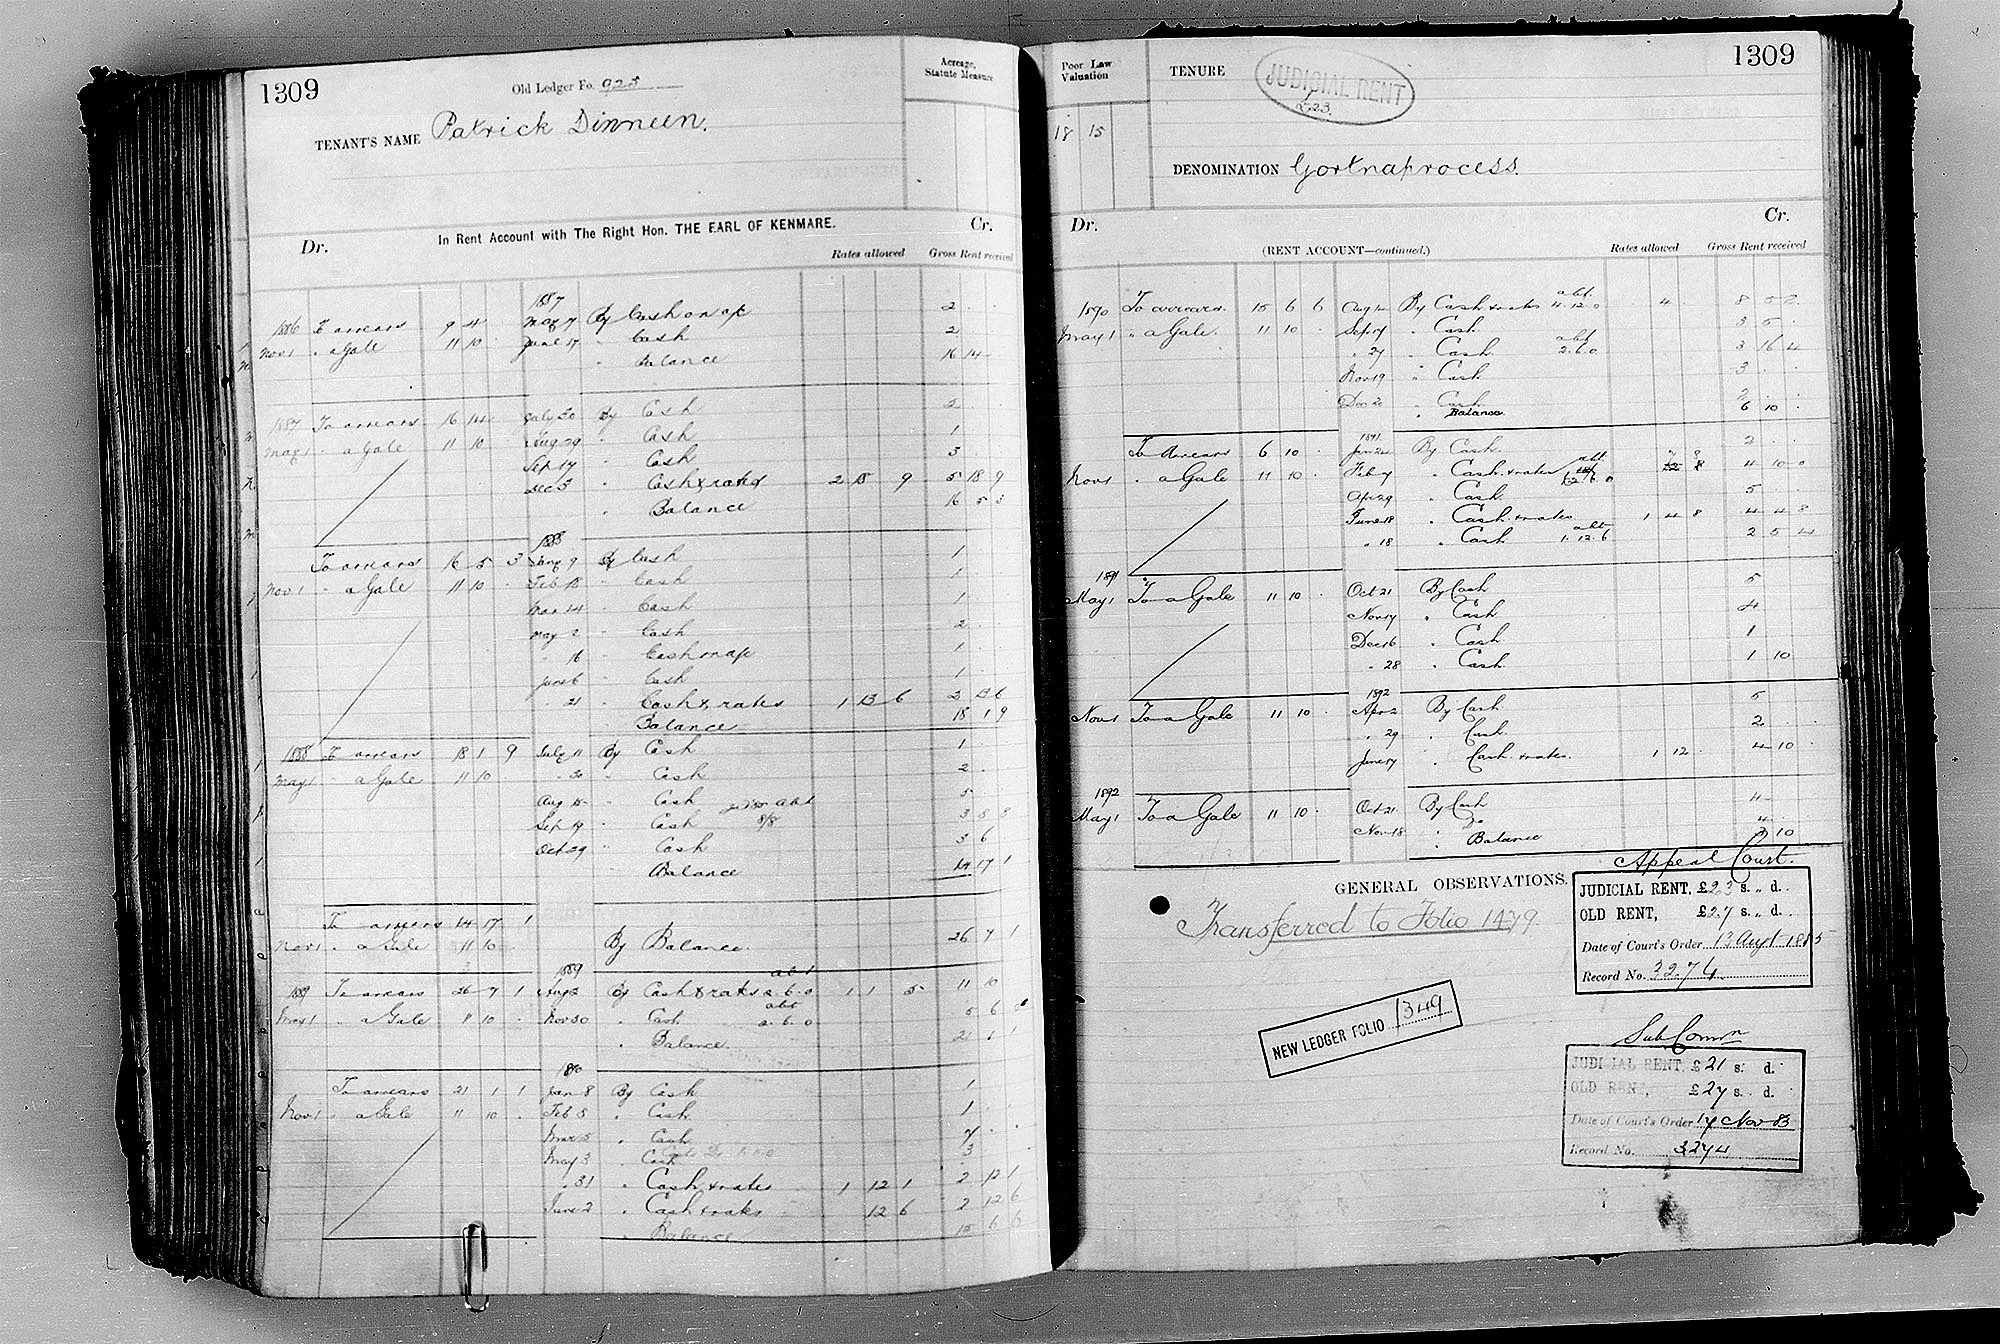 1309
Old Ledger Fo. 925
Acreage, Statute Measure
TENANT'S NAME Patrick Dinneen.
In Rent Account with The Right Hon. THE EARL OF KENMARE.
Dr. Cr.
Rates allowed Gross Rent received
1887
1886 To arrears 9 4 May 7 By Cash on a/c 2
Nov 1 " a Gale 11 10 June 17 " Cash 2
" Balance 16 14
1887 To arrears 16 14 July 30 By Cash 2
May 1 " a Gale 11 10 Aug 29 " Cash 1
Sep 17 " Cash 3
Dec 5 " Cash & rates 2 15 9 5 18 9
" Balance 16 5 3
1888
To arrears 16 5 3 Jany 9 By Cash 1
Nov 1 " a Gale 11 10 Feb 15 " Cash 1
Mar 14 " Cash 1
May 2 " Cash 2
" 16 " Cash on a/c 1
June 6 " Cash 1
" 21 " Cash & rates 1 13 6 2 13 6
Balance 18 1 9
1888 To arrears 18 1 9 July 11 By Cash 1
May 1 " a Gale 11 10 " 30 " Cash 2
Aug 15 " Cash 5
Sep 19 " Cash 8/8 3 8 8
Oct 29 " Cash 3 6
" Balance 14 17 1
To arrears 14 17 1
Nov 1 " a Gale 11 10 By Balance. 26 7 1
1889
1889 To arrears 26 7 1 Aug 2 By Cash & rates abt 2.6.0 1 1 5 11 10
May 1 " a Gale 11 10 Nov 30 " Cash abt 2.6.0 5 6 0
" Balance. 21 1 1
1890
To arrears 21 1 1 Jan 8 By Cash 1
Nov 1 " a Gale 11 10 Feb 5 " Cash 1
Mar 5 " Cash
May 3 " Cash 3
" 31 " Cash & rates 1 12 1 2 12 1
June 2 " Cash & rates 12 6 2 12 6
" Balance 15 6 6
1309
Poor Law Valuation
18 15
TENURE
JUDICIAL RENT
£23.
DENOMINATION Gortnaprocess.
Dr. Cr.
(RENT ACCOUNT—continued.)
Rates allowed Gross Rent received
1890 To arrears. 15 6 6 Aug 12 By Cash & rates abt. 4.12.0 4 8 5 2
May 1 " a Gale. 11 10 Sep 17 " Cash 3 5
" 27 " Cash abt 2.6.0 3 16 4
Nov 19 " Cash 3
Dec 20 " Cash 2
" Balance 6 10
1891.
To Arrears 6 10 Jan 24 By Cash 2
Nov 1 " a Gale 11 10 Feb 7 " Cash & rates abt. 4 10 0
Apr 29 " Cash 5
June 18 " Cash & rates 1 4 8 4 4 8
" 18 " Cash abt 1.12.6 2 5 4
1891
May 1 To a Gale 11 10 Oct 21 By Cash 5
Nov 17 " Cash 4
Dec 16 " Cash 1
" 28 " Cash 1 10
1892
Nov 1 To a Gale 11 10 Apr 2 By Cash 5
" 29 " Cash 2
June 17 " Cash & rates. 1 12 4 10
1892
May 1 To a Gale 11 10 Oct 21 By Cash 4
Nov 18 " Do 4
" Balance 3 10
GENERAL OBSERVATIONS.
Transferred to Folio 1479.
NEW LEDGER FOLIO 1349
Appeal Court.
JUDICIAL RENT, £23 s. „ d.
OLD RENT, £27 s. „ d.
Date of Court's Order 13 Augt 1885
Record No. 3274
Sub Comn
JUDICIAL RENT, £21 s. d.
OLD RENT, £27 s. d.
Date of Court's Order 17 Nov 83
Record No. 3274